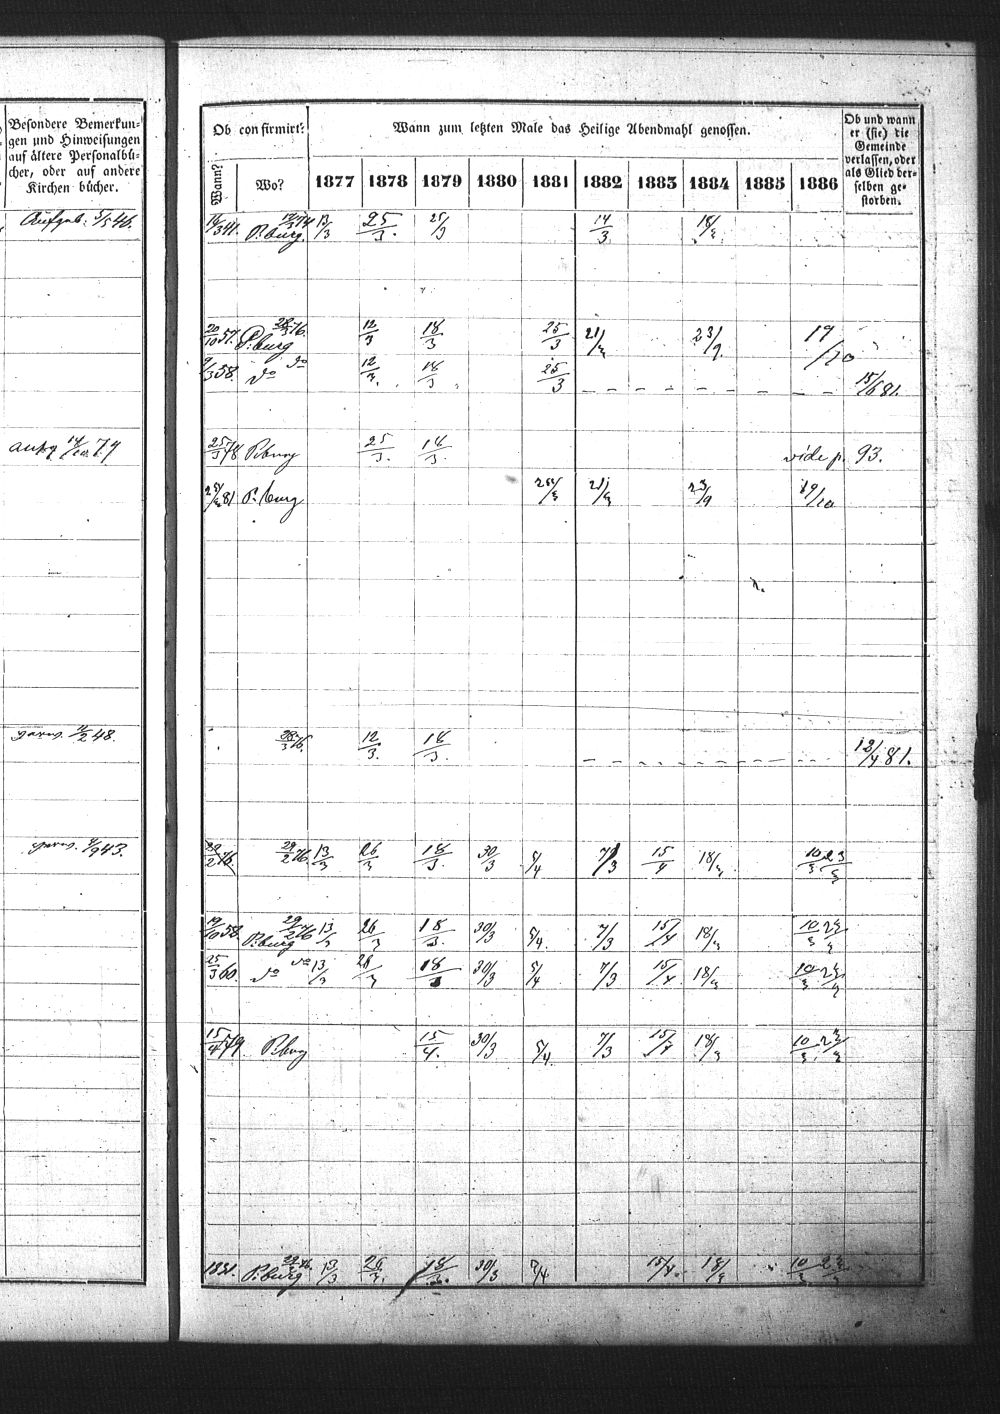 Besondere Bemerkun-
gen und Hinweisungen
auf ältere Personalbü-
cher, oder auf andere
Kirchen bücher.
Ob confirmirt?
Wann?
Wo?
Wann zum letzten Male das Heilige Abendmahl genossen.
1877 1878 1879 1880 1881 1882 1883 1884 1885 1886
Ob und wann
er (sie) die
Gemeinde
verlassen, oder
als Glied der-
selben ge-
storben.
P.burg. 13/3 25/3. 25/3 14/3. 18/3
20/10 57. P.burg 28/3 76. 12/3 18/3 25/3 21/3 23/9. 19/10
9/3 58. do do 12/3. 18/3 25/3 15/6 81.
25/3 78 P.burg 25/3. 18/3. vide p. 93.
25/3 81 P.burg 25/3 21/3 23/9 19/10
28/3 76. 12/3. 18/3. 12/4 81.
29/2 76. 29/2 76. 13/3 26/3 18/3. 30/3 5/4 7/3 15/4 18/3. 10/3 23/3
19/10 58. P.burg 29/2 76 13/3 26/3 18/3. 30/3 5/4. 7/3 15/4 18/3 10/3 23/3
25/3 60. do do 13/3 26/3 18/3 30/3 5/4 7/3 15/4. 18/3 10/3 23/3
15/4 79. P.burg 15/4. 30/3 5/4. 7/3 15/4 18/3 10/3 23/3
1851. P.burg 13/3 26/3. 18/3. 30/3 5/4 15/4. 18/3 10/3 23/3